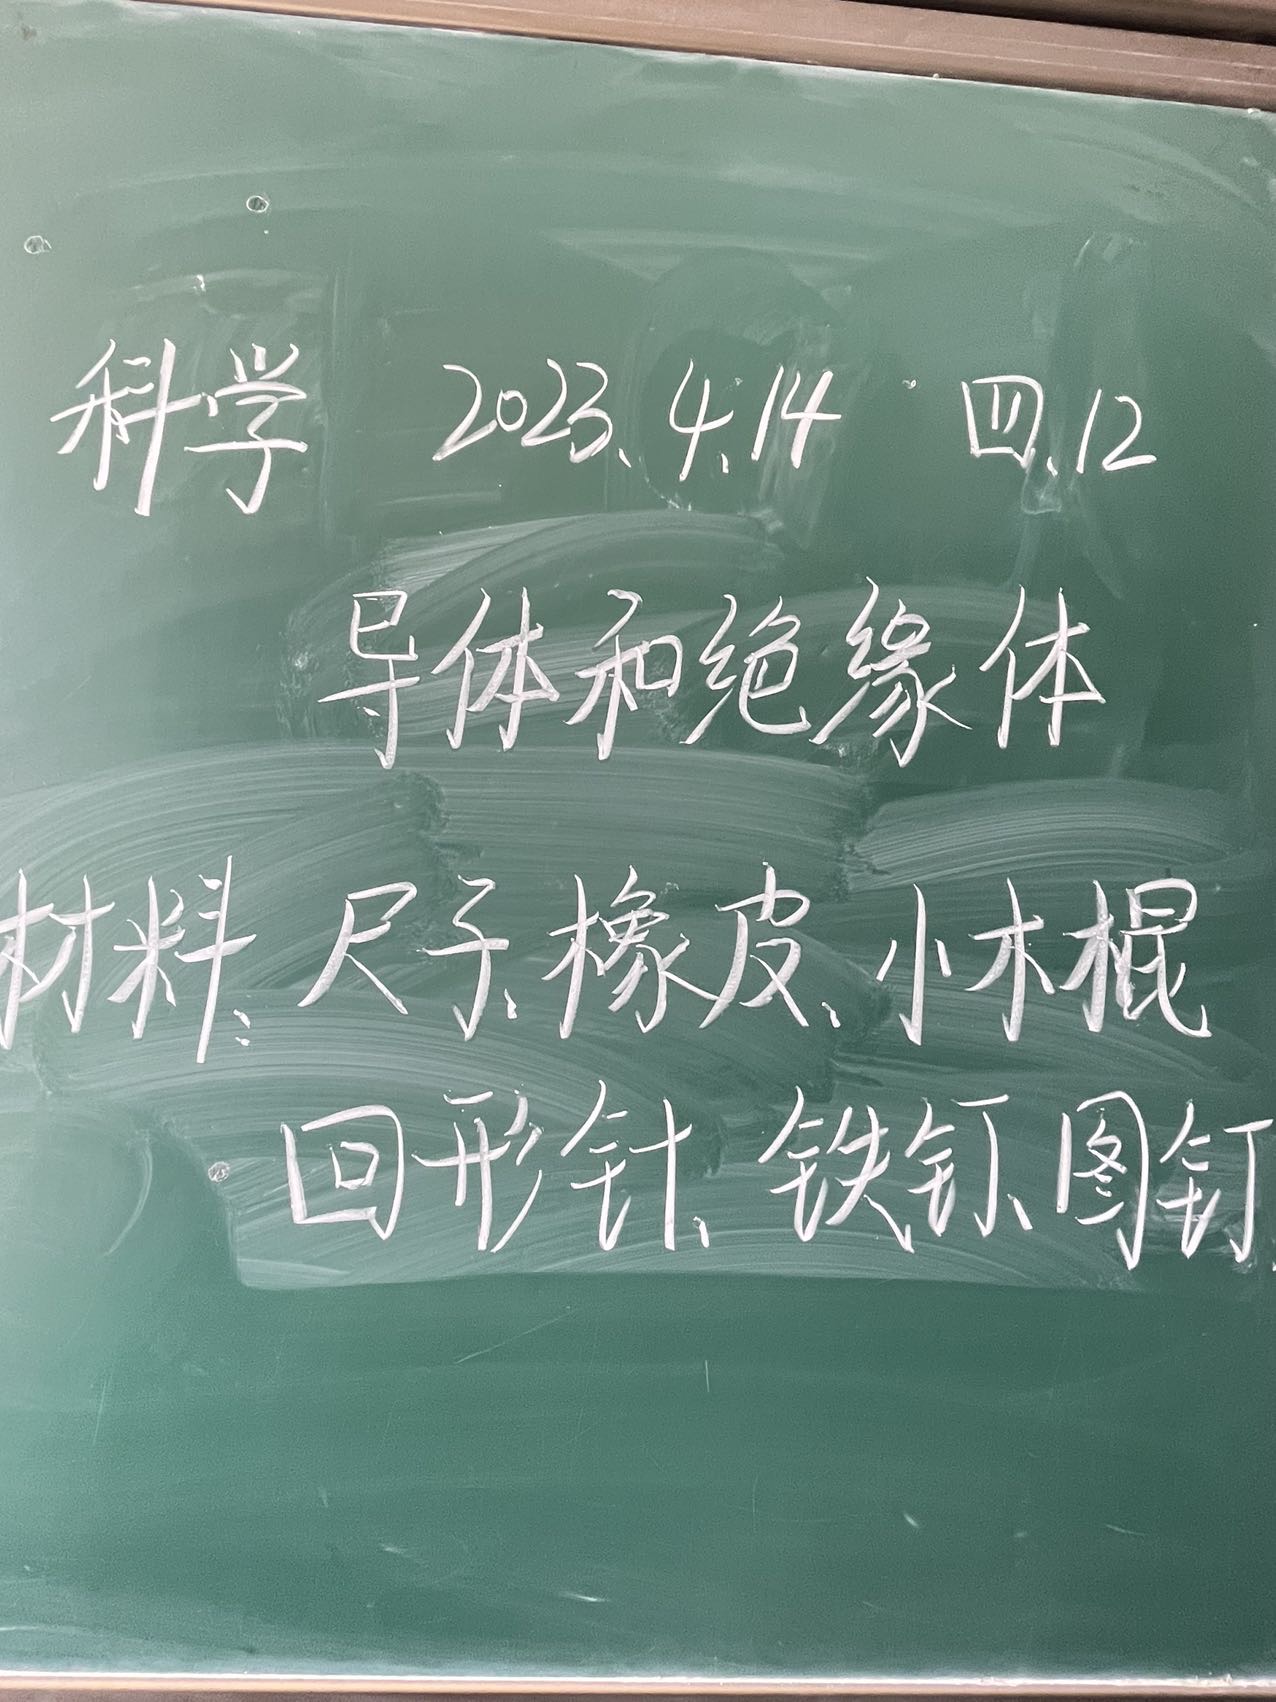 科学 2023.4.14 四.12
导体和绝缘体
材料：尺子、橡皮、小木棍
回形针、铁钉、图钉